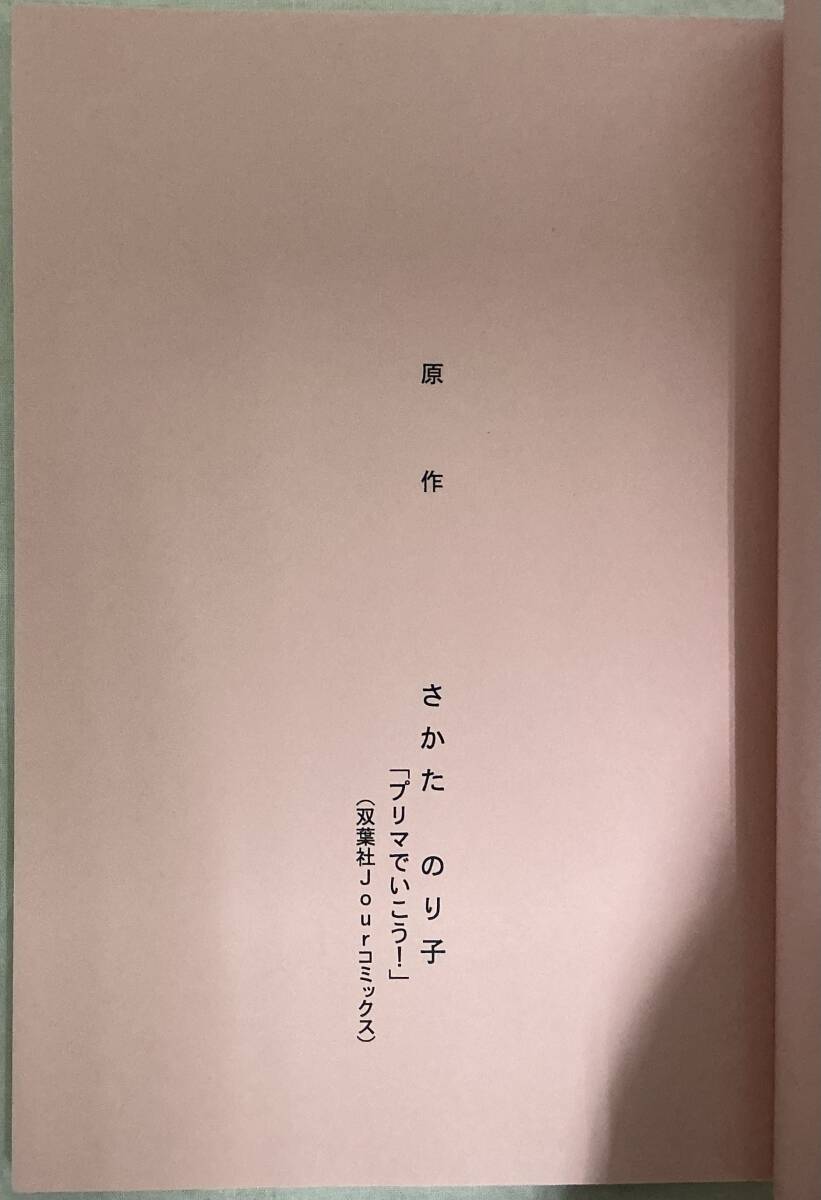 原作 さかた のり子
「プリマでいこう！」
（双葉社Jourコミックス）